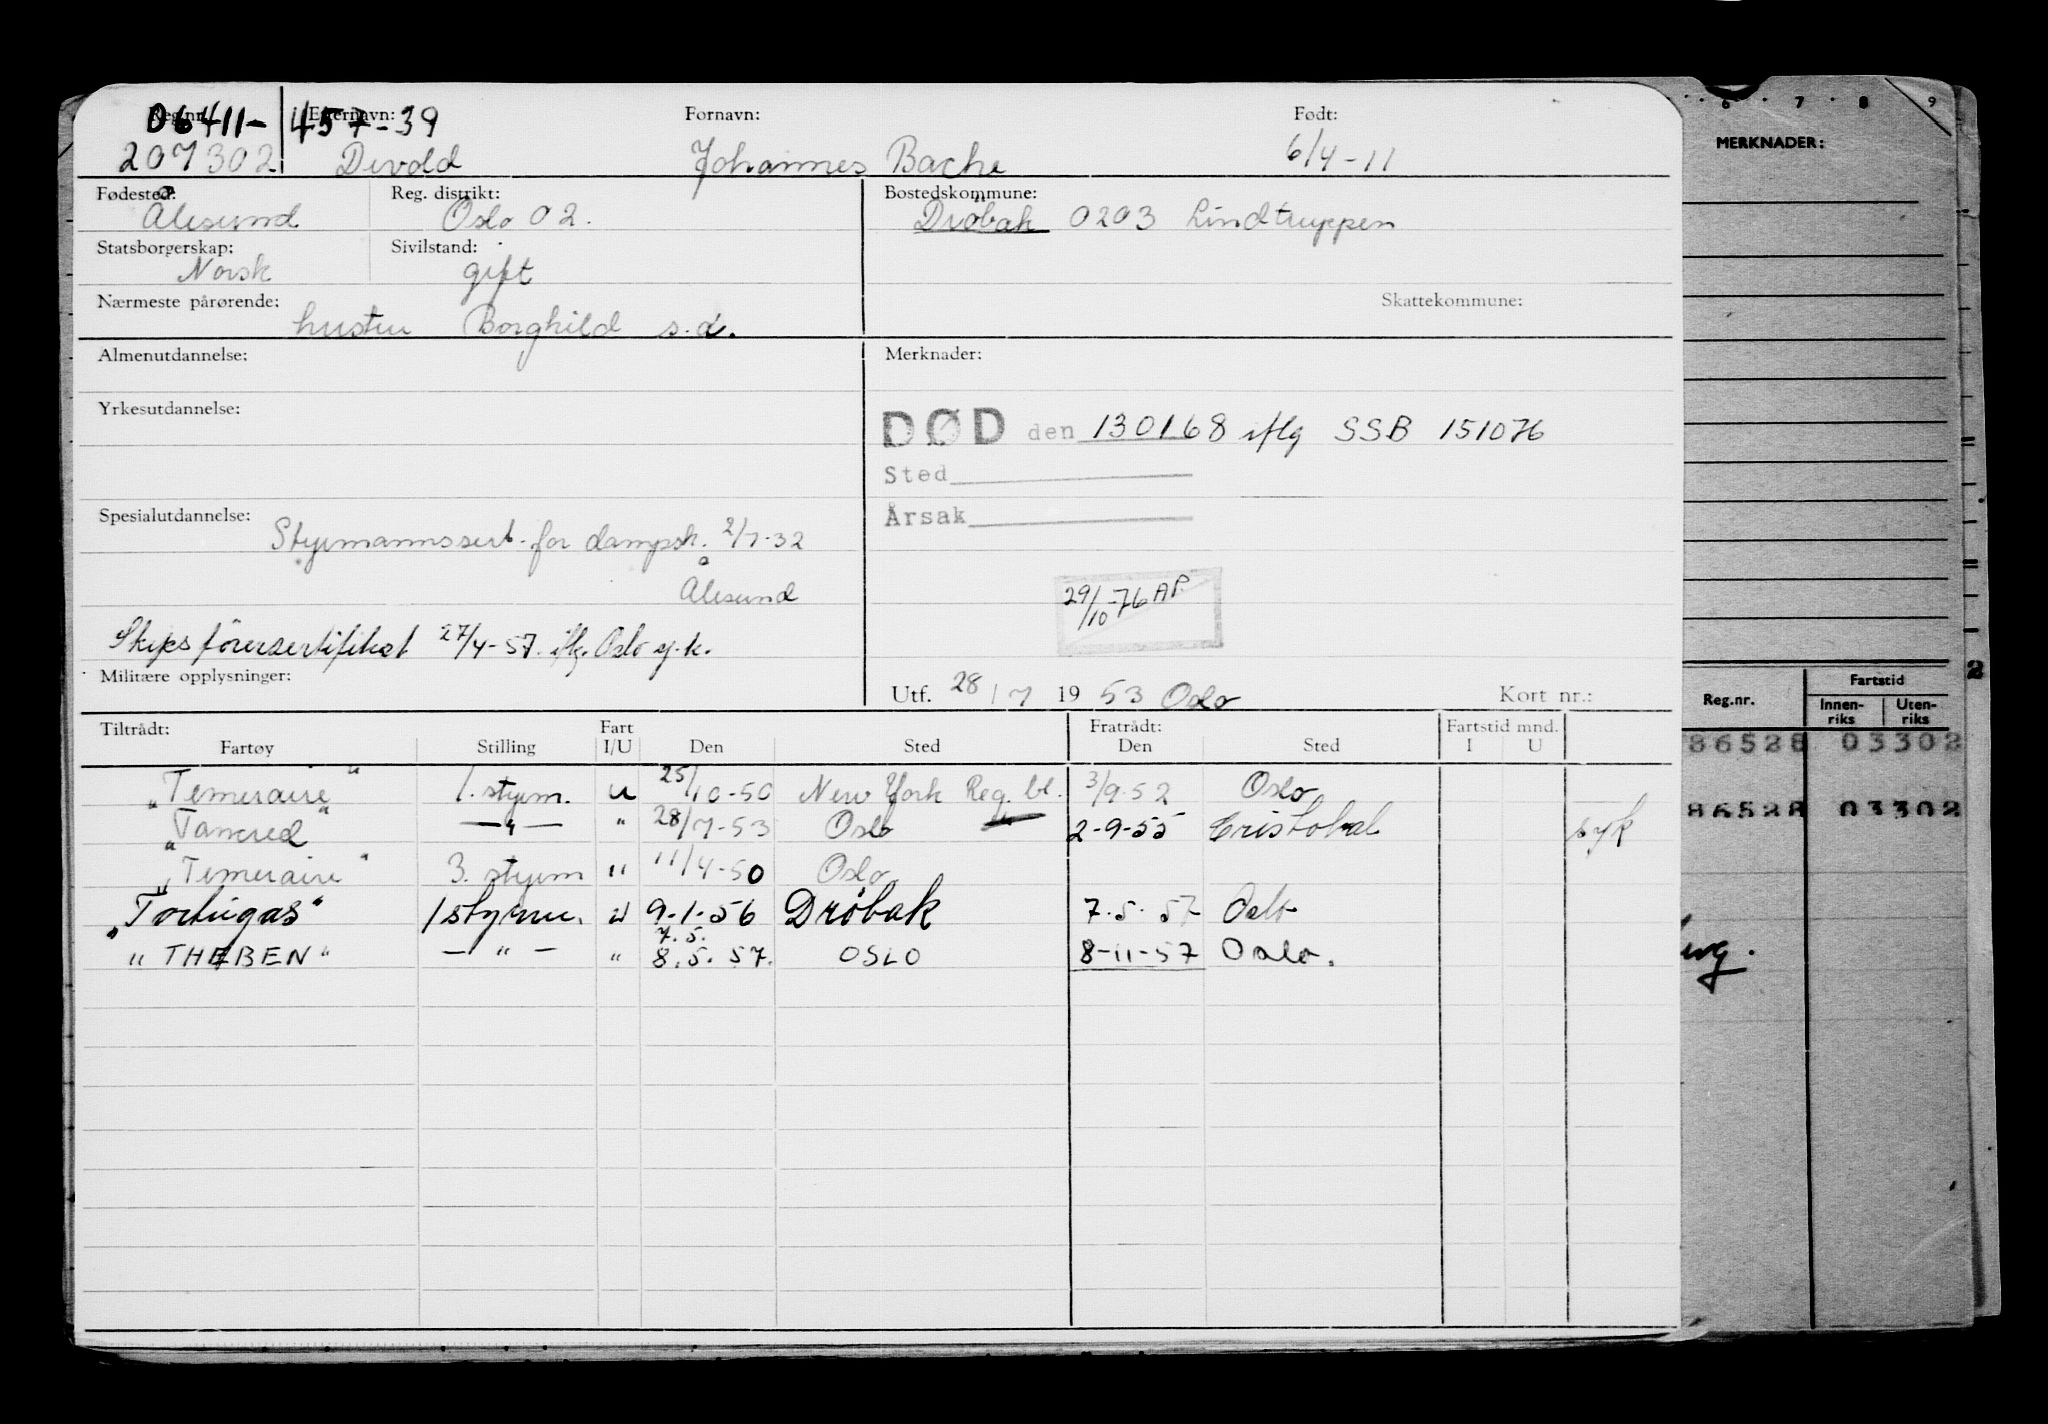 Reg.nr. Etternavn: Fornavn: Født:
06411- 457-39
207302 Devold Johannes Bache 6/4-11
Fødested: Reg. distrikt: Bostedskommune:
Ålesund Oslo 02. Drøbak 0203 Lindtruppen
Statsborgerskap: Sivilstand:
Norsk gift
Nærmeste pårørende: Skattekommune:
hustru Borghild s.d.
Almenutdannelse: Merknader:
Yrkesutdannelse:
DØD den 130168 iflg SSB 151076
Sted
Årsak
Spesialutdannelse:
Styrmannssert. for dampsk. 2/7-32
Ålesund
29/10-76 AP.
Skipsförersertifikat 27/4-57. iflg. Oslo sj.k.
Militære opplysninger:
Utf. 28/7 1953 Oslo Kort nr.:
Tiltrådt: Fart Fratrådt: Fartstid mnd.
Fartøy Stilling I/U Den Sted Den Sted I U
"Temeraire" 1. styrm. u 25/10-50 New York Reg. bl. 3/9-52 Oslo
"Tancred" — " — " 28/7-53 Oslo 2-9-55 Cristobal syk
"Temeraire" 3. styrm " 11/4-50 Oslo
"Tortugas" 1 styrm. u 9-1-56 Drøbak 7.5.57 Oslo
7.5.
"THEBEN" — " — " 8.5.57. OSLO 8-11-57 Oslo.
6 7 8 9
MERKNADER:
2
Reg.nr. Fartstid
Innen-riks Uten-riks
86528 03302
86528 03302